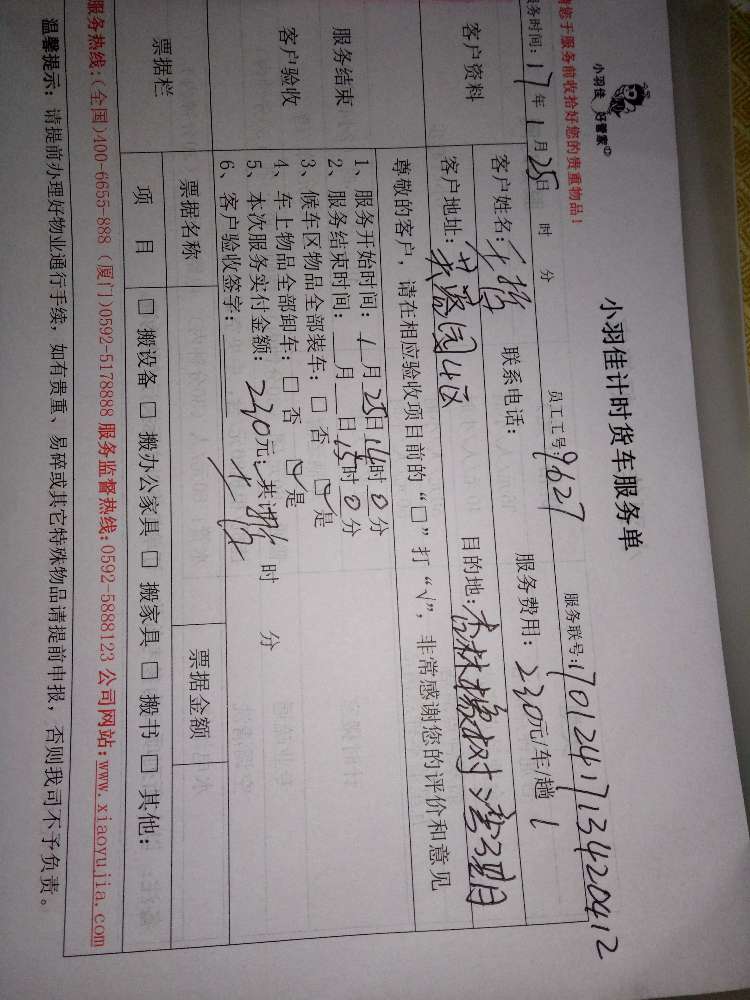 小羽佳 好管家
小羽佳计时货车服务单
您于服务前收拾好您的贵重物品！
务时间：17年1月25日 时 分 员工工号：9627 服务联号：1701241713420412
客户资料
客户姓名： 联系电话： 服务费用：230元/车/趟 1
客户地址： 园4区 目的地：杏林橡树湾3期
尊敬的客户，请在相应验收项目前的“□”打“√”，非常感谢您的评价和意见
服务结束
客户验收
1、服务开始时间：1月25日14时0分
2、服务结束时间： 月 日15时0分
3、候车区物品全部装车：□ 否 ☑ 是
4、车上物品全部卸车：□ 否 ☑ 是
5、本次服务实付金额：230元；共计 时 分
6、客户验收签字：
票据栏
票据名称 票据金额
项 目 □ 搬设备 □ 搬办公家具 □ 搬家具 □ 搬书 □ 其他：
服务热线：(全国)400-6655-888 (厦门)0592-5178888 服务监督热线：0592-5888123 公司网站：www.xiaoyujia.com
温馨提示：请提前办理好物业通行手续，如有贵重、易碎或其它特殊物品请提前申报，否则我司不予负责。